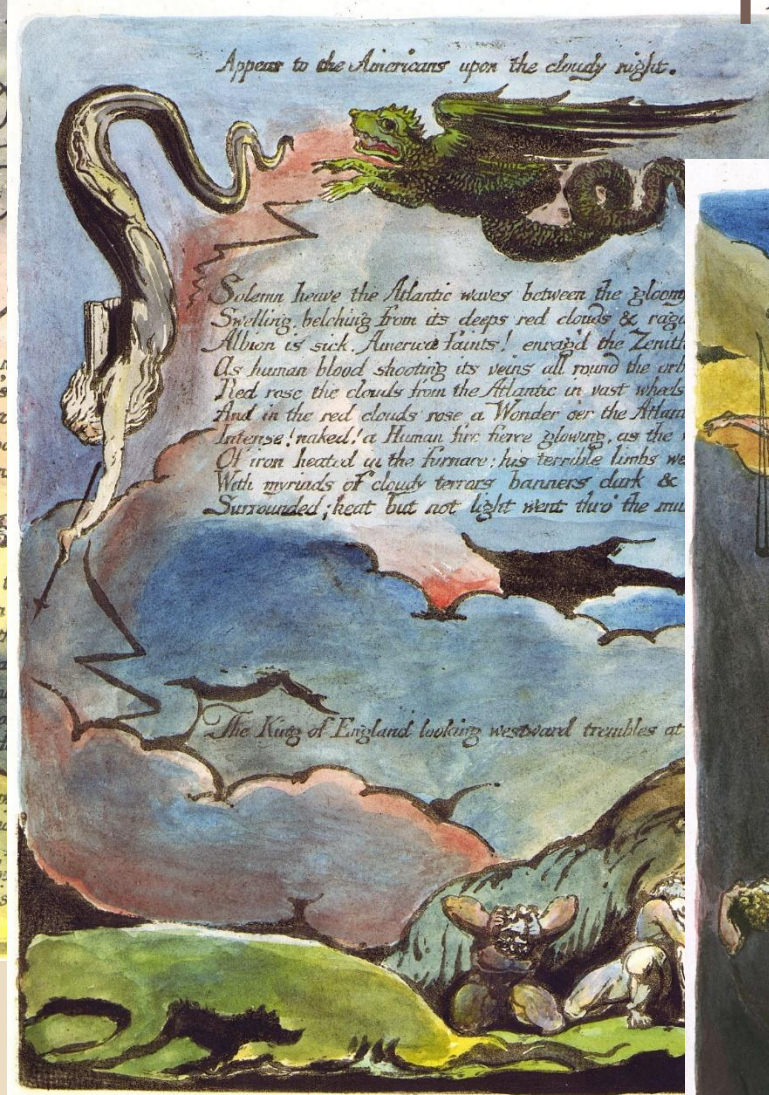 Appear to the Americans upon the cloudy night.
Solemn heave the Atlantic waves between the gloomy
Swelling, belching from its deeps red clouds & raging
Albion is sick. America faints! enrag'd the Zenith
As human blood shooting its veins all round the orb
Red rose the clouds from the Atlantic in vast wheels
And in the red clouds rose a Wonder oer the Atlan
Intense! naked! a Human fire fierce glowing, as the
Of iron heated in the furnace; his terrible limbs we
With myriads of cloudy terrors banners dark &
Surrounded; heat but not light went thro' the mu
The King of England looking westward trembles at